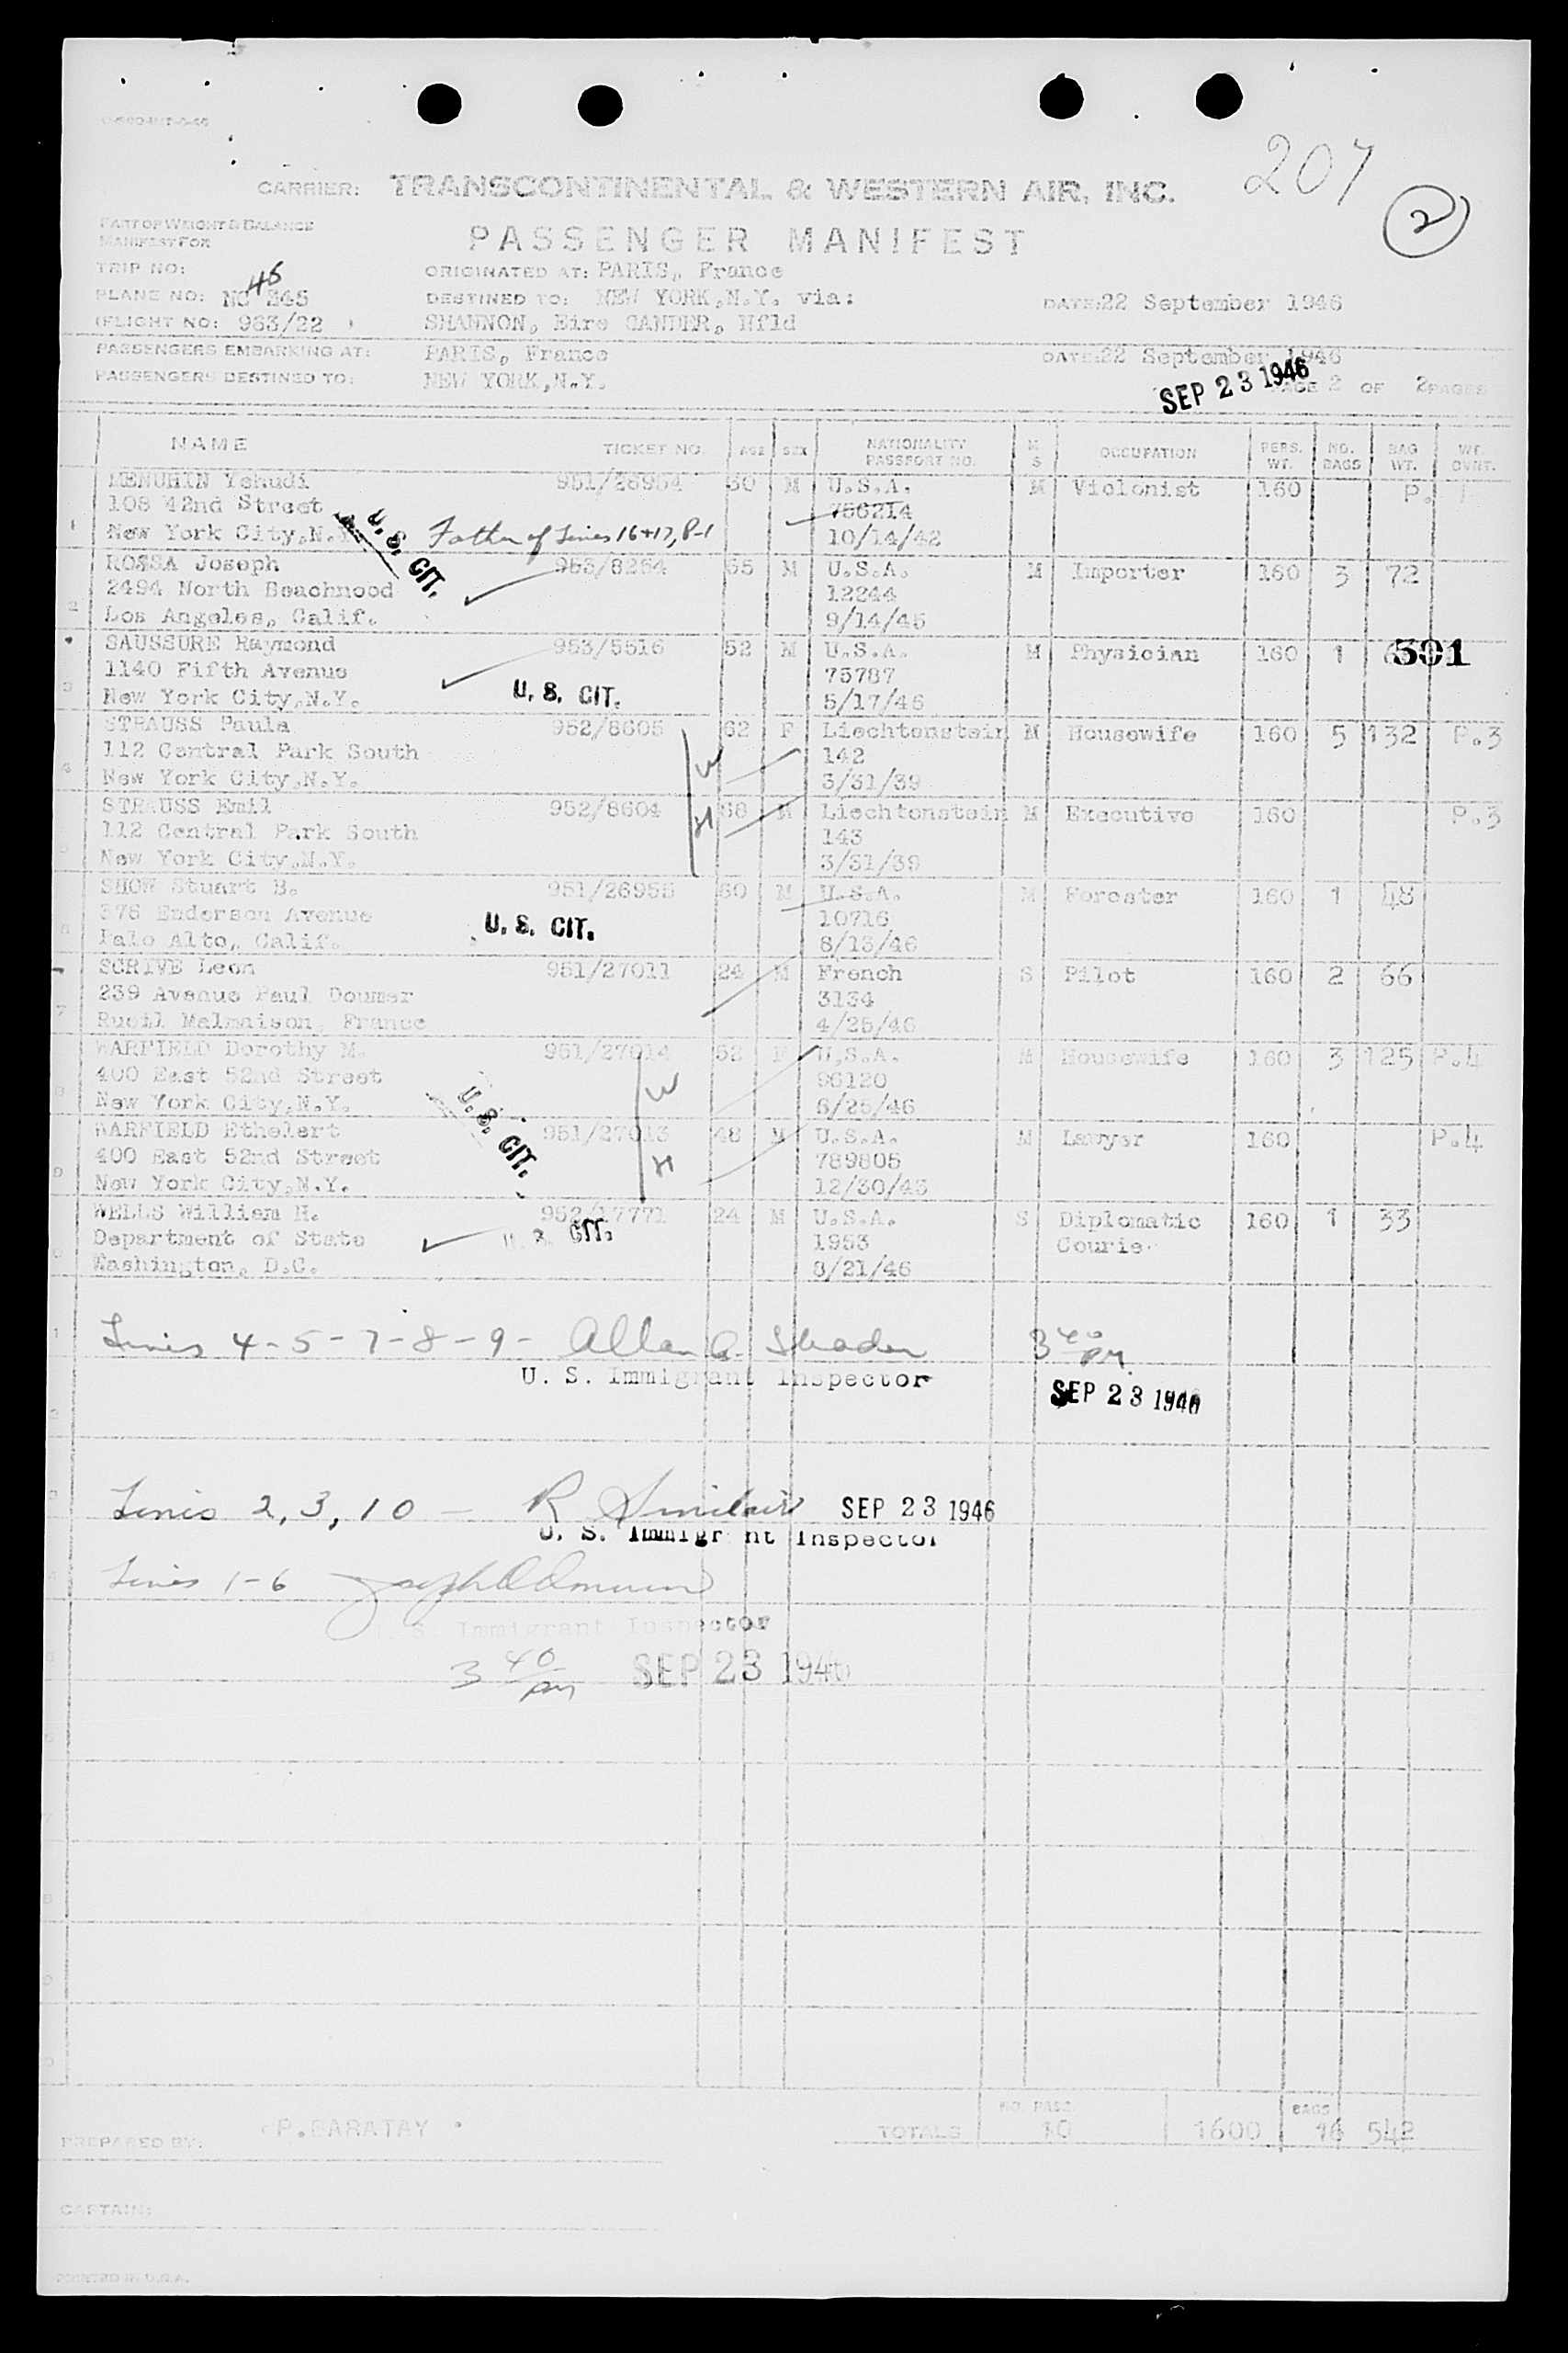 207
2
CARRIER: TRANSCONTINENTAL & WESTERN AIR, INC.
PART OF WEIGHT & BALANCE
MANIFEST FOR
PASSENGER MANIFEST
TRIP NO:
ORIGINATED AT: PARIS, France
46
PLANE NO: NC 345
DESTINED TO: NEW YORK,N.Y. via:
DATE:22 September 1946
(FLIGHT NO: 963/22 )
SHANNON, Eire GANDER, Nfld
PASSENGERS EMBARKING AT: PARIS, France
DATE:22 September 1946
PASSENGERS DESTINED TO: NEW YORK,N.Y.
SEP 23 1946
PAGE 2 OF 2 PAGES
NAME TICKET NO. AGE SEX NATIONALITY PASSPORT NO. M S OCCUPATION PERS. WT. NO. BAGS BAG WT. WT. OVNT.
1 MENUHIN Yehudi 951/26954 30 M U.S.A. M Violonist 160 P.
108 42nd Street 756214
New York City,N.Y. U. S. CIT. Father of Lines 16+17, P-1 10/14/42
2 ROSSA Joseph 953/8264 55 M U.S.A. M Importer 160 3 72
2494 North Beachnood 12244
Los Angeles, Calif. 9/14/45
3 SAUSSURE Raymond 953/5516 52 M U.S.A. M Physician 160 1 591
1140 Fifth Avenue 75787
New York City,N.Y. U. S. CIT. 5/17/46
4 STRAUSS Paula 952/8605 W 62 F Liechtenstein M Housewife 160 5 132 P.3
112 Central Park South 142
New York City,N.Y. 3/31/39
STRAUSS Emil 952/8604 H 68 M Liechtenstein M Executive 160 P.3
112 Central Park South 143
New York City,N.Y. 3/31/39
SHOW Stuart B. 951/26955 60 M U.S.A. M Forester 160 1 48
376 Enderson Avenue 10716
Palo Alto, Calif. U. S. CIT. 8/13/46
7 SCRIVE Leon 951/27011 24 M French S Pilot 160 2 66
239 Avenue Paul Doumer 3134
Rueil Malmaison, France 4/25/46
WARFIELD Dorothy M. 951/27014 W 52 F U.S.A. M Housewife 160 3 125 P.4
400 East 52nd Street 96120
New York City,N.Y. 6/25/46
9 WARFIELD Ethelert 951/27013 H 48 M U.S.A. M Lawyer 160 P.4
400 East 52nd Street U. S. CIT. 789805
New York City,N.Y. 12/30/43
WELLS William H. 952/17771 24 M U.S.A. S Diplomatic 160 1 33
Department of State U. S. CIT. 1953 Courie
Washington, D.C. 8/21/46
Lines 4-5-7-8-9- Allan G. 3 40 PM
U. S. Immigrant Inspector
SEP 23 1946
Lines 2, 3, 10 — R Sinclair SEP 23 1946
U. S. Immigrant Inspector
Lines 1-6
U. S. Immigrant Inspector
3 40 pm SEP 23 1946
PREPARED BY: P.BARATAY
TOTALS NO PASS 10 1600 BAGS 16 542
CAPTAIN:
PRINTED IN U.S.A.